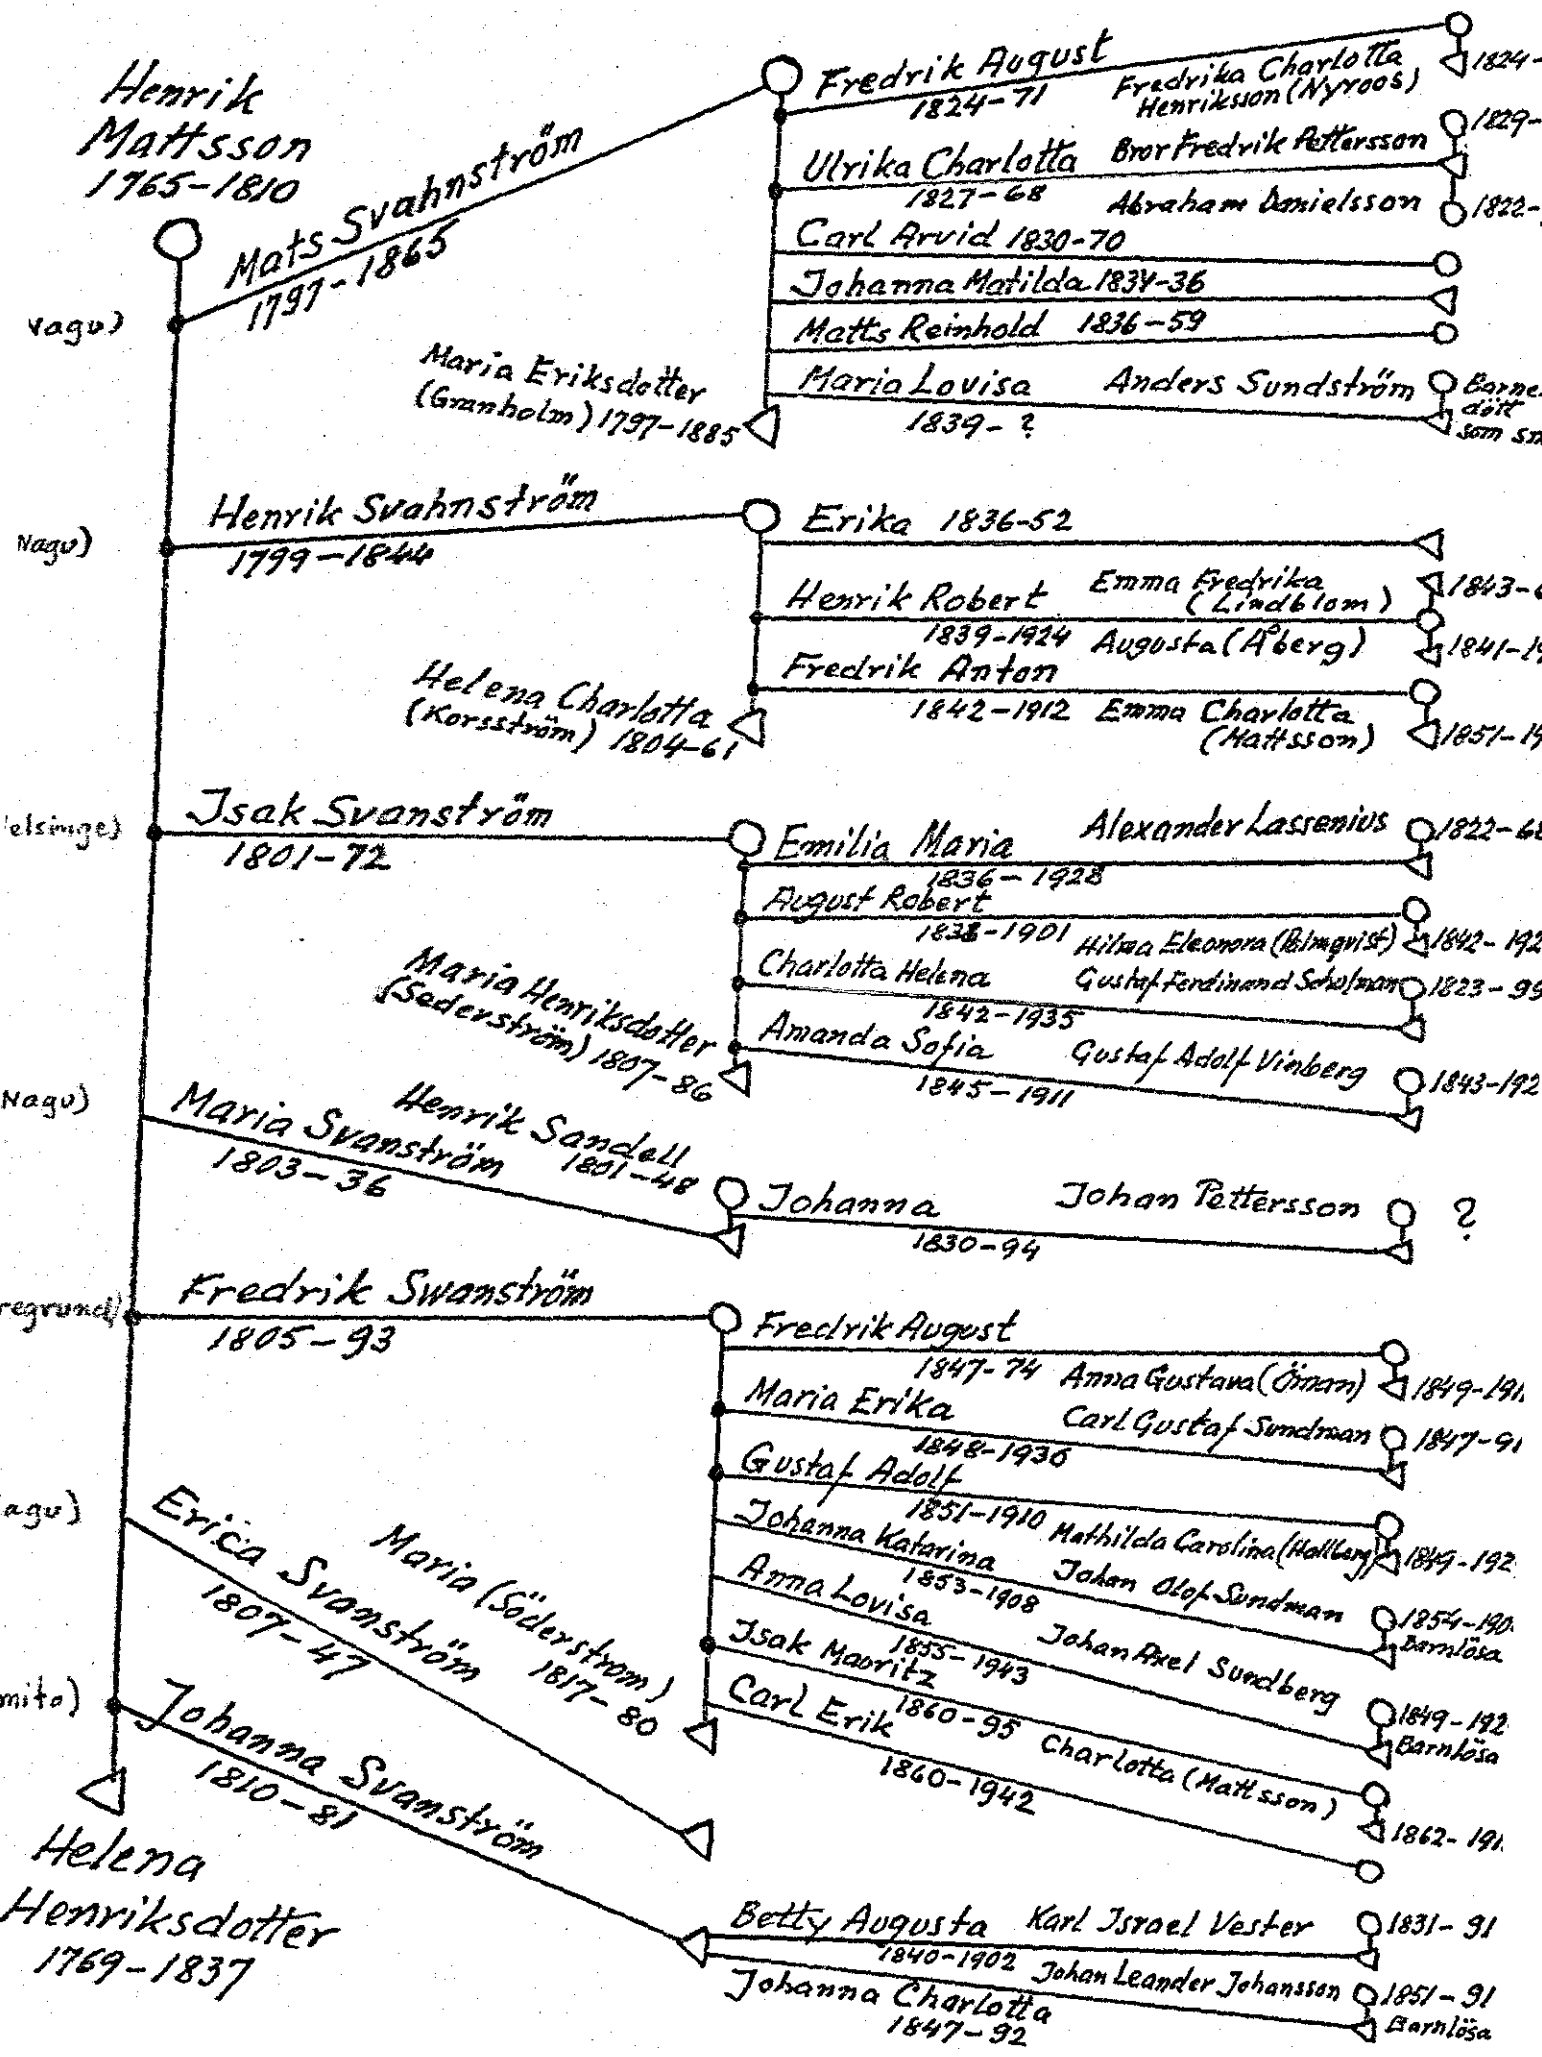 Henrik
Mattsson
1765-1810
Mats Svahnström
1797-1865
Maria Eriksdotter
(Granholm) 1797-1885
Fredrik August
1824-71
Fredrika Charlotta
Henriksson (Nyroos)
1824-
Ulrika Charlotta
1827-68
Bror Fredrik Pettersson
1829-
Abraham Danielsson
1822-
Carl Arvid 1830-70
Johanna Matilda 1834-36
Matts Reinhold 1836-59
Maria Lovisa
1839-?
Anders Sundström
dött
som
Nagu)
Henrik Svahnström
1799-1844
Helena Charlotta
(Korsström) 1804-61
Erika 1836-52
Henrik Robert
1839-1924
Emma Fredrika
(Lindblom)
1843-
Augusta (Åberg)
1841-
Fredrik Anton
1842-1912
Emma Charlotta
(Mattsson)
1851-
elsinge)
Isak Svanström
1801-72
Maria Henriksdotter
(Sederström) 1807-86
Emilia Maria
1836-1928
Alexander Lassenius
1822-68
August Robert
1838-1901
Hilma Eleonora (Palmqvist)
1842-192
Charlotta Helena
1842-1935
Gustaf Ferdinand Scholman
1823-99
Amanda Sofia
1845-1911
Gustaf Adolf Vinberg
1843-192
Nagu)
Maria Svanström
1803-36
Henrik Sandell
1801-48
Johanna
1830-94
Johan Pettersson
?
regrund)
Fredrik Swanström
1805-93
Maria (Söderström)
1817-80
Fredrik August
1847-74
Anna Gustava (Öman)
1849-191
Maria Erika
1848-1936
Carl Gustaf Sundman
1847-91
Gustaf Adolf
1851-1910
Mathilda Carolina (Hallberg)
1849-192
Johanna Katarina
1853-1908
Johan Olof Sundman
1854-190
Barnlösa
Anna Lovisa
1855-1943
Johan Axel Sundberg
1849-192
Barnlösa
Isak Mauritz
1860-95
Charlotta (Mattsson)
1862-191
Carl Erik
1860-1942
agu)
Erica Svanström
1807-47
mito)
Johanna Svanström
1810-81
Betty Augusta
1840-1902
Karl Israel Vester
1831-91
Johanna Charlotta
1847-92
Johan Leander Johansson
1851-91
Barnlösa
Helena
Henriksdotter
1769-1837